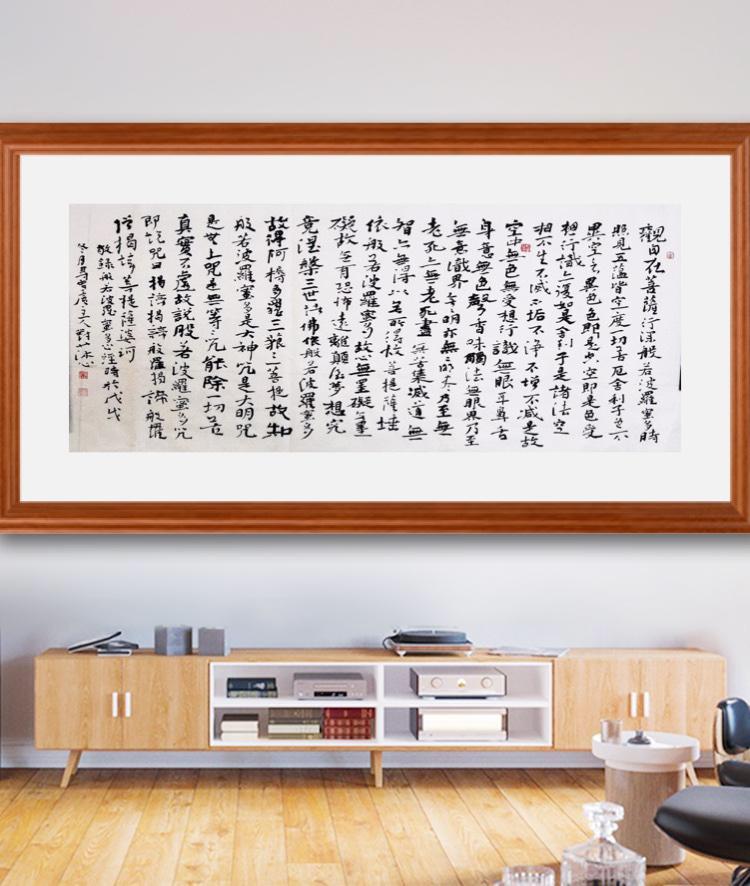 觀自在菩薩行深般若波羅蜜多時
照見五蘊皆空度一切苦厄舍利子色不
異空空不異色色即是空空即是色受
想行識亦復如是舍利子是諸法空
相不生不滅不垢不淨不增不減是故
空中無色無受想行識無眼耳鼻舌
身意無色聲香味觸法無眼界乃至
無意識界無無明亦無無明盡乃至無
老死亦無老死盡無苦集滅道無
智亦無得以無所得故菩提薩埵
依般若波羅蜜多故心無罣礙無罣
礙故無有恐怖遠離顛倒夢想究
竟涅槃三世諸佛依般若波羅蜜多
故得阿耨多羅三藐三菩提故知
般若波羅蜜多是大神咒是大明咒
是無上咒是無等等咒能除一切苦
真實不虛故說般若波羅蜜多咒
即說咒曰揭諦揭諦般羅揭諦般羅
僧揭諦菩提薩婆訶
敬錄般若波羅蜜多心經時於戊戌
冬月